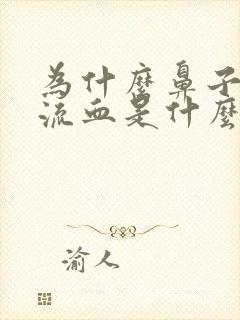 為什麼鼻子
流血是什麼
渝人